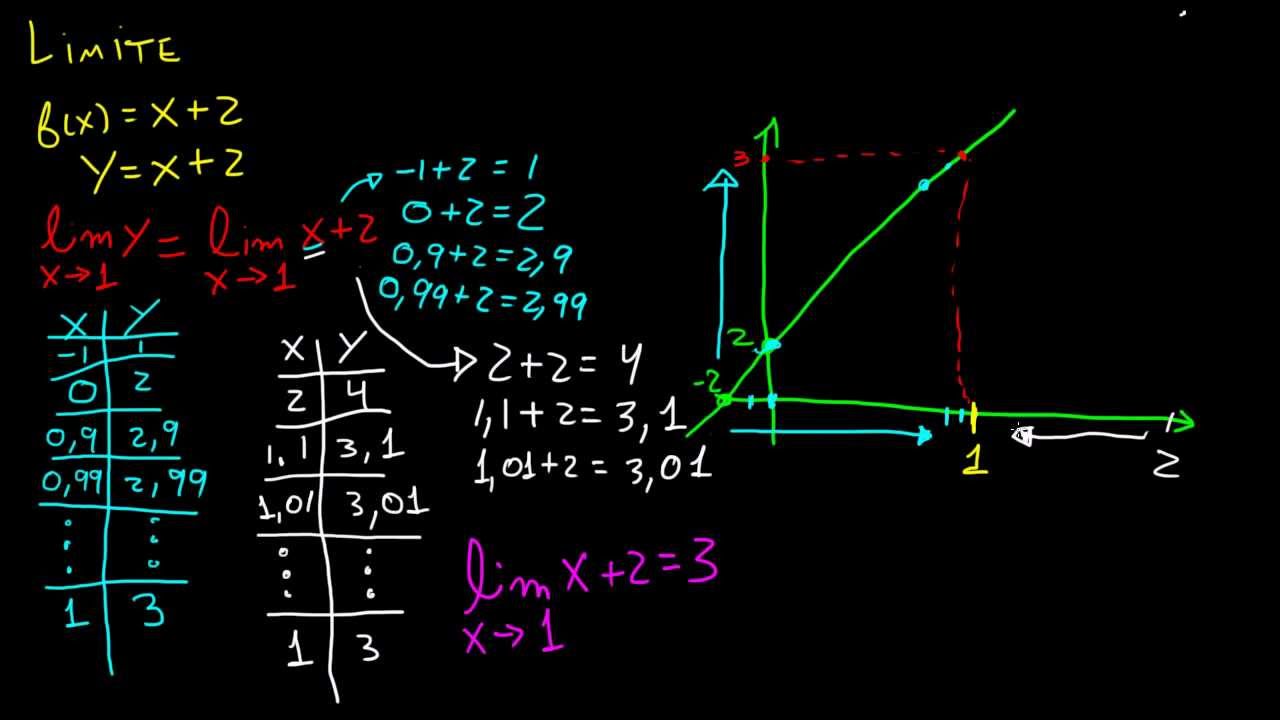 LIMITE
f(x) = x+2
y = x+2
lim y = lim x+2
x→1 x→1
-1+2 = 1
0+2=2
0,9+2=2,9
0,99+2=2,99
x y
-1 1
0 2
0,9 2,9
0,99 2,99
⋮ ⋮
1 3
x y
2 4
1,1 3,1
1,01 3,01
⋮ ⋮
1 3
2+2= 4
1,1+2= 3,1
1,01+2 = 3,01
lim x+2=3
x→1
3
2
-2
1
2